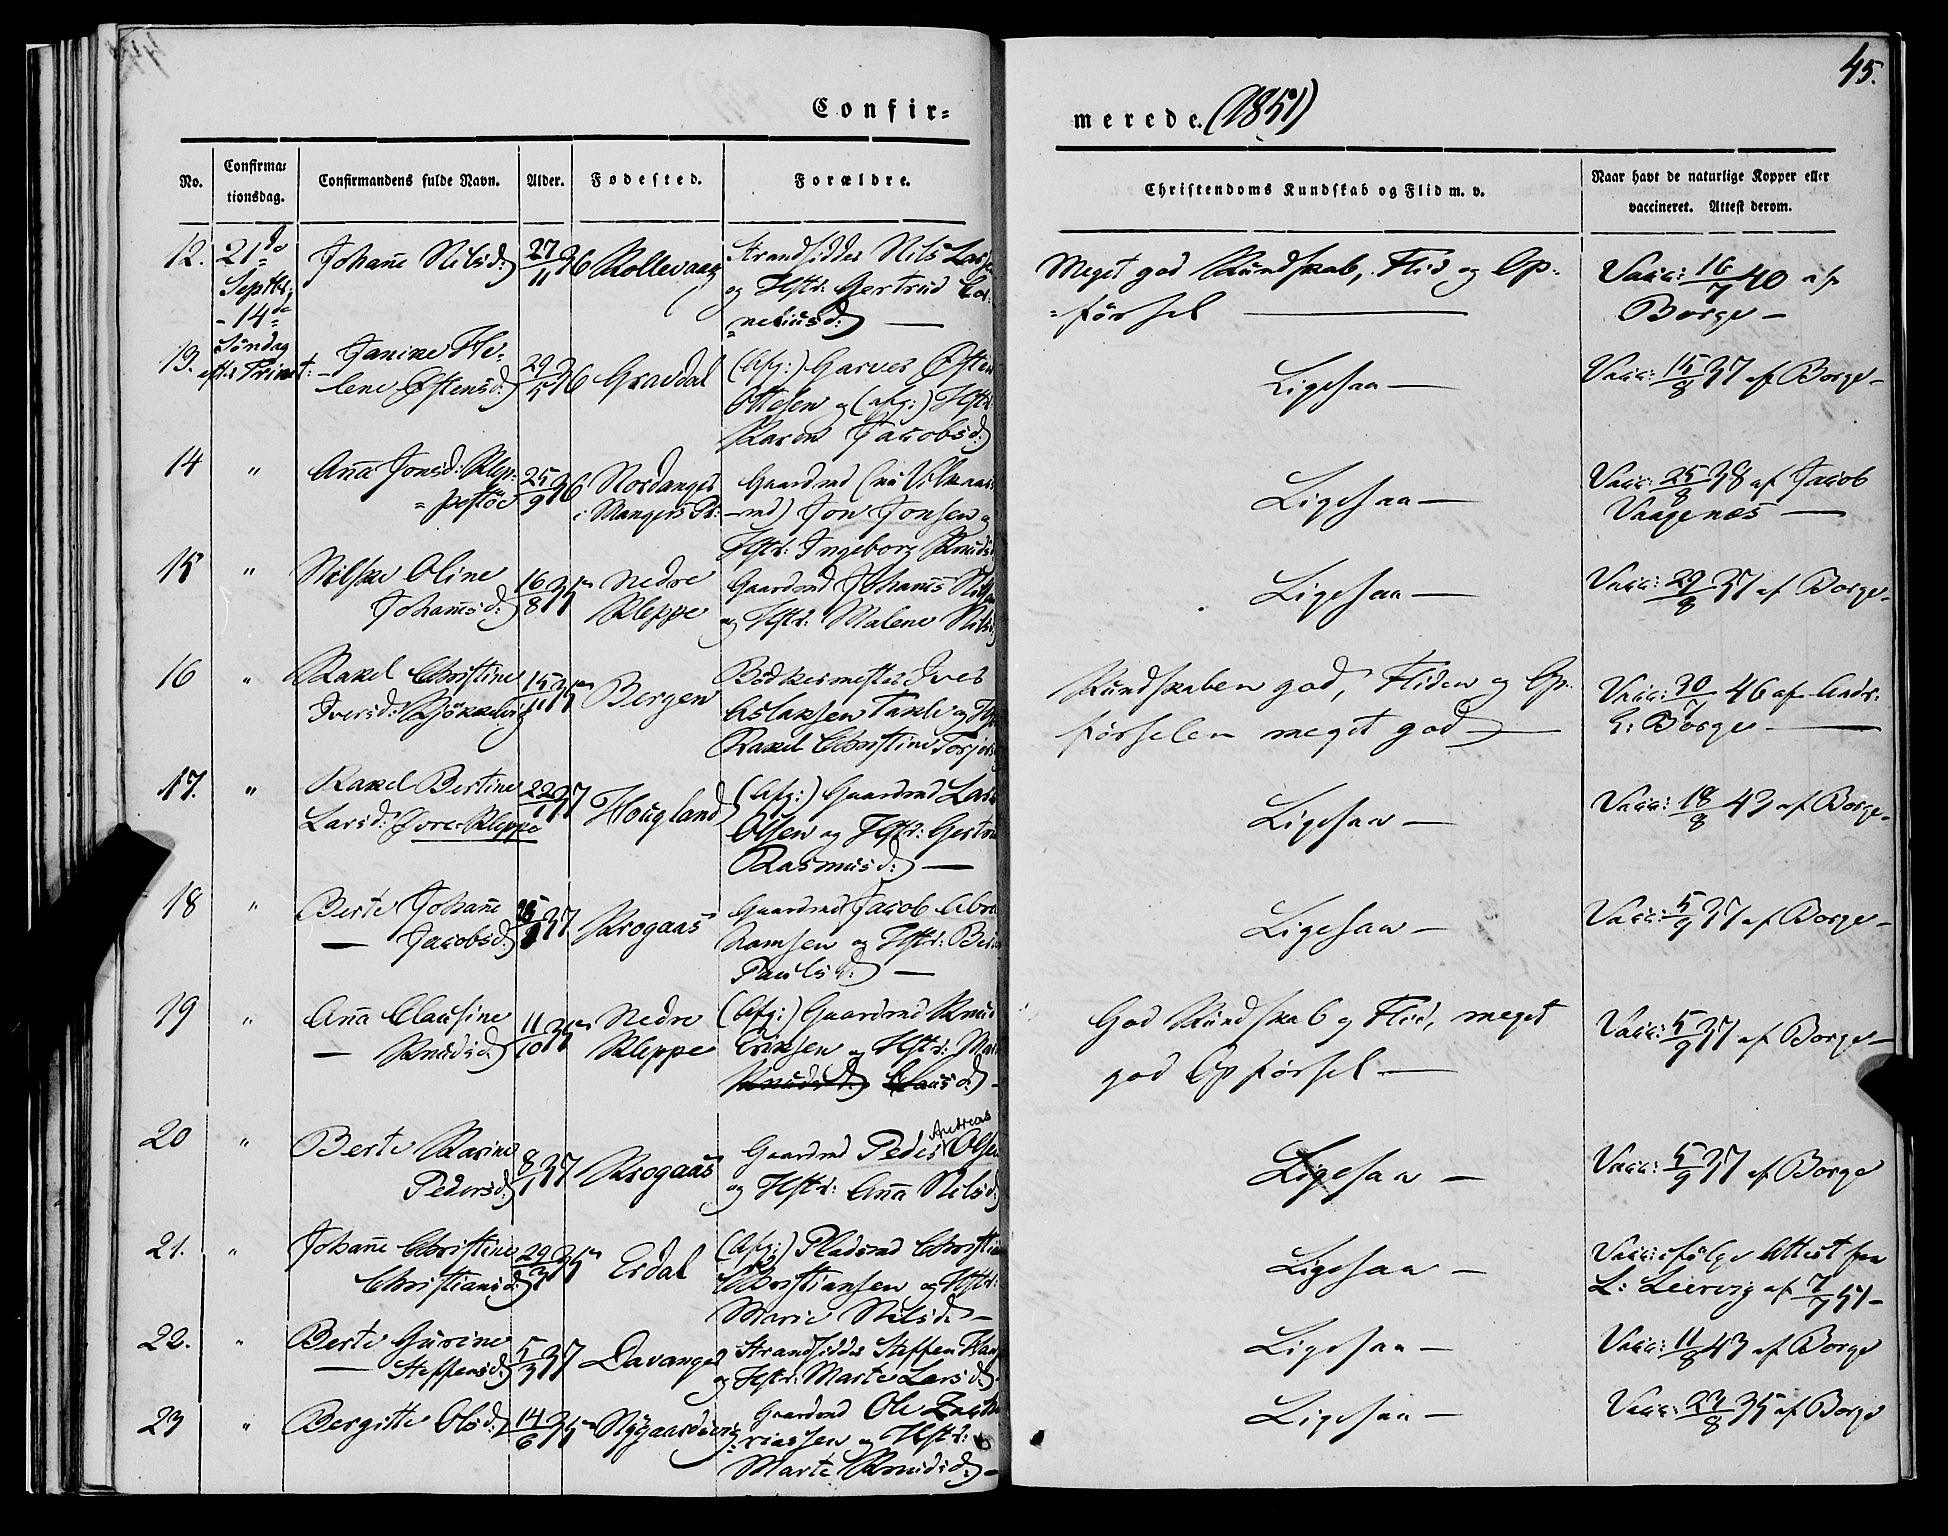 45.
Confir=
merede. (1851)
No.
Confirma=
tionsdag.
Confirmandens fulde Navn.
Alder.
Fødested.
Forældre.
Christendoms Kundskab og Flid m. v.
Naar havt de naturlige Kopper eller
vaccineret. Attest derom.
12.
21de
Septbr:
- 14de
Søndag
efter Trinit:
Johañe Nilsd:
27/11 36
Rollevaag
Strandsidder Nils Lars
og Hstr: Gertrud Cor=
=neliusd: —
Meget god Kundskab, Flid og Op=
=førsel —
Vacc: 16/7 40 af
Borge —
13.
Janike He=
lene Østensd:
29/5 36
Gravdal
(Afg:) Garver Østen
Ottesen og (afg:) Hstr
Karen Jacobsd:
Ligesaa —
Vacc: 15/8 37 af Borge —
14
"
Aña Jonsd: Klep=
=pestøe
25/9 36
Nordanger
i Mangers Pr:
Gaardmd (nu Vilkaar
-md) Jon Jonsen og
Hstr: Ingeborg Knudsd
Ligesaa —
Vacc: 25/8 38 af Jacob
Vaagenæs —
15
"
Nilske Oline
Johañsd:
16/8 35
Nedre
Kleppe
Gaardmd Johañs Nils
og Hstr: Malene Nilsd
Ligesaa —
Vacc: 29/8 37 af Borge —
16
"
Rakel Christine
Iversd: Kjøkkelvig
15/11 35
Bergen
Bødkermester Iver
Aslaksen Takle og H
Rakel Christine Torjers
Kundskaben god, Fliden og Op=
førselen meget god —
Vacc: 30/7 46 af Andr:
L: Borge —
17.
"
Rakel Bertine
Larsd: Øvre-Kleppe
22/1 37
Hougland
(Afg:) Gaardmd Lars
Olsen og Hstr: Gertru
Rasmusd: —
Ligesaa —
Vacc: 18/8 43 af Borge —
18
"
Berte Johañe
— Jacobsd:
37
Krogaas
Gaardmd Jacob Abra
hamsen og Hstr: Beri
Paulsd: —
Ligesaa —
Vacc: 5/9 37 af Borge —
19
"
Aña Clausine
— Knudsd:
11/10 35
Nedre
Kleppe
(Afg:) Gaardmd Knud
Eriksen og Hstr: Mar
Knudsd: Clausd: —
God Kundskab og Flid, meget
god Opførsel —
Vacc: 5/9 37 af Borge —
20
"
Berte Karine
Pedersd:
8/1 37
Krogaas
Gaardmd Peder Andreas Olsen
og Hstr: Aña Nilsd:
Ligesaa —
Vacc: 5/9 37 af Borge
21.
"
Johañe Christine
Christiansd:
29/3 35
Erdal
(Afg:) Pladsmd Christia
Christiansen og Hstr:
Marie Nilsd: —
Ligesaa —
Vacc: ifølge Attest fra
L: Leirvig af 7/7 51 —
22.
"
Berte Gurine
— Steffensd:
5/3 37
Davanger
Strandsidder Steffen Hans
og Hstr: Marte Larsd:
Ligesaa —
Vacc: 11/8 43 af Borge
23
"
Bergitte Olsd:
14/6 35
Nygaardsvig
Gaardmd Ole Zacha
=riassen og Hstr:
Marte Knudsd: —
Ligesaa —
Vacc: 23/8 35 af Borge